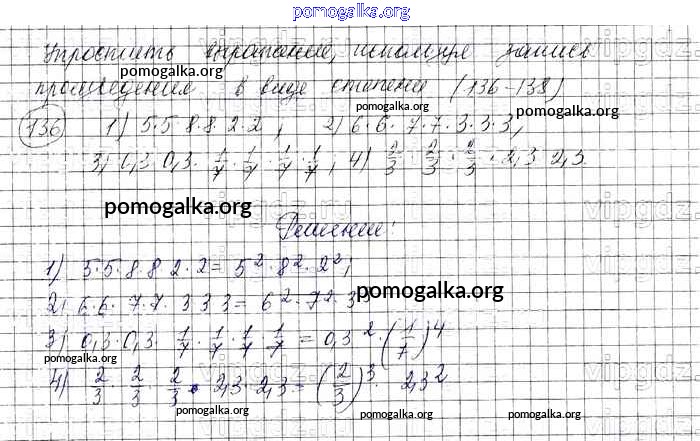 pomogalka.org
Упростить выражение, используя запись
произведения в виде степени (136-138)
pomogalka.org
pomogalka.org
136 1) 5·5·8·8·2·2; 2) 6·6·7·7·3·3·3;
3) 0,3·0,3·1/7·1/7·1/7·1/7; 4) 2/3·2/3·2/3·2,3·2,3
pomogalka.org
pomogalka.org
pomogalka.org
Решение:
1) 5·5·8·8·2·2 = 5²·8²·2²;
2) 6·6·7·7·3·3·3 = 6²·7²·3³
pomogalka.org
3) 0,3·0,3·1/7·1/7·1/7·1/7 = 0,3²·(1/7)⁴
pomogalka.org
pomogalka.org
4) 2/3·2/3·2/3·2,3·2,3 = (2/3)³·2,3²
pomogalka.org
pomogalka.org
pomogalka.org